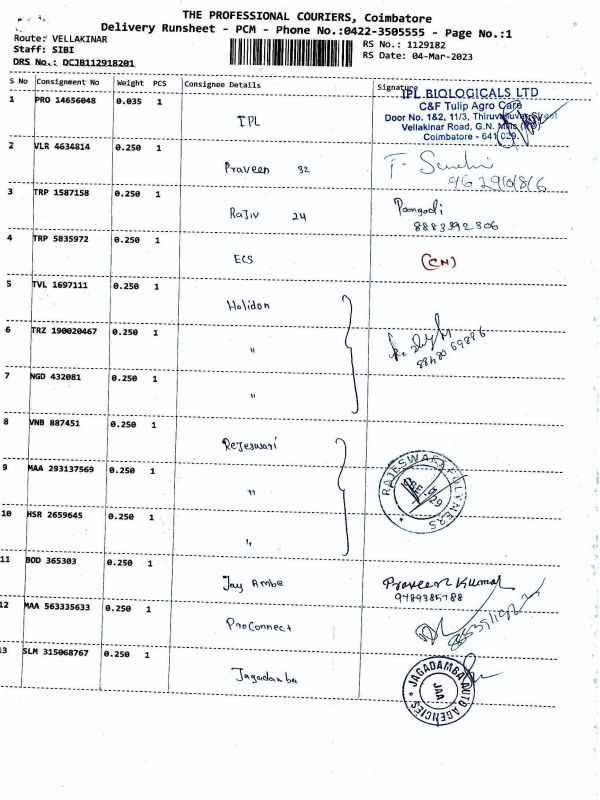 THE PROFESSIONAL COURIERS, Coimbatore
Delivery Runsheet - PCM - Phone No.:0422-3505555 - Page No.:1
Route: VELLAKINAR
Staff: SIBI
DRS No.: DCJB112918201
RS No.: 1129182
RS Date: 04-Mar-2023
S No Consignment No Weight PCS Consignee Details Signature
1 PRO 14656048 0.035 1 IPL
IPL BIOLOGICALS LTD
C&F Tulip Agro Care
Door No. 1&2, 11/3, Thiruvalluvar Street
Vellakinar Road, G.N. Mills (PO)
Coimbatore - 641 029.
2 VLR 4634814 0.250 1 Praveen 32
3 TRP 1587158 0.250 1 Rajiv 24
8883392306
4 TRP 5835972 0.250 1 ECS (CN)
5 TVL 1697111 0.250 1 Holidon
6 TRZ 190020467 0.250 1 "
7 NGD 432081 0.250 1 "
8 VNB 887451 0.250 1 Rejeswari
9 MAA 293137569 0.250 1 "
RAJESWARI POLYMERS
10 HSR 2659645 0.250 1 "
11 BOD 365303 0.250 1 Jay Ambe
Praveen Kumar
9789385788
12 MAA 563335633 0.250 1 ProConnect
13 SLM 315068767 0.250 1 Jagadamba
JAGADAMBA AUTO AGENCIES
JAA